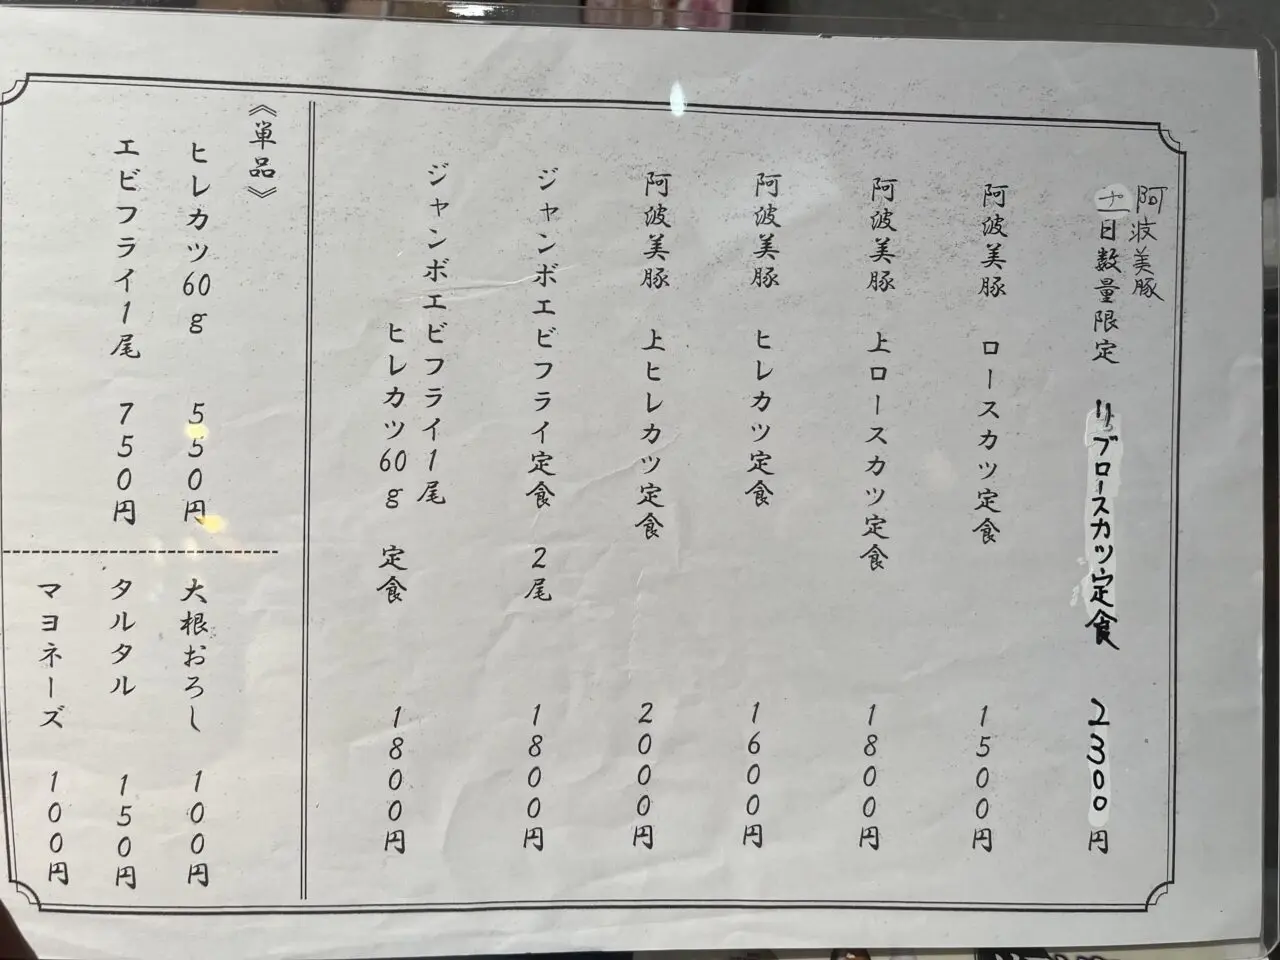 阿波美豚
一日数量限定 リブロースカツ定食 2300円
阿波美豚 ロースカツ定食 1500円
阿波美豚 上ロースカツ定食 1800円
阿波美豚 ヒレカツ定食 1600円
阿波美豚 上ヒレカツ定食 2000円
ジャンボエビフライ定食 2尾 1800円
ジャンボエビフライ1尾
ヒレカツ60g 定食 1800円
《単品》
ヒレカツ60g 550円
エビフライ1尾 750円
大根おろし 100円
タルタル 150円
マヨネーズ 100円